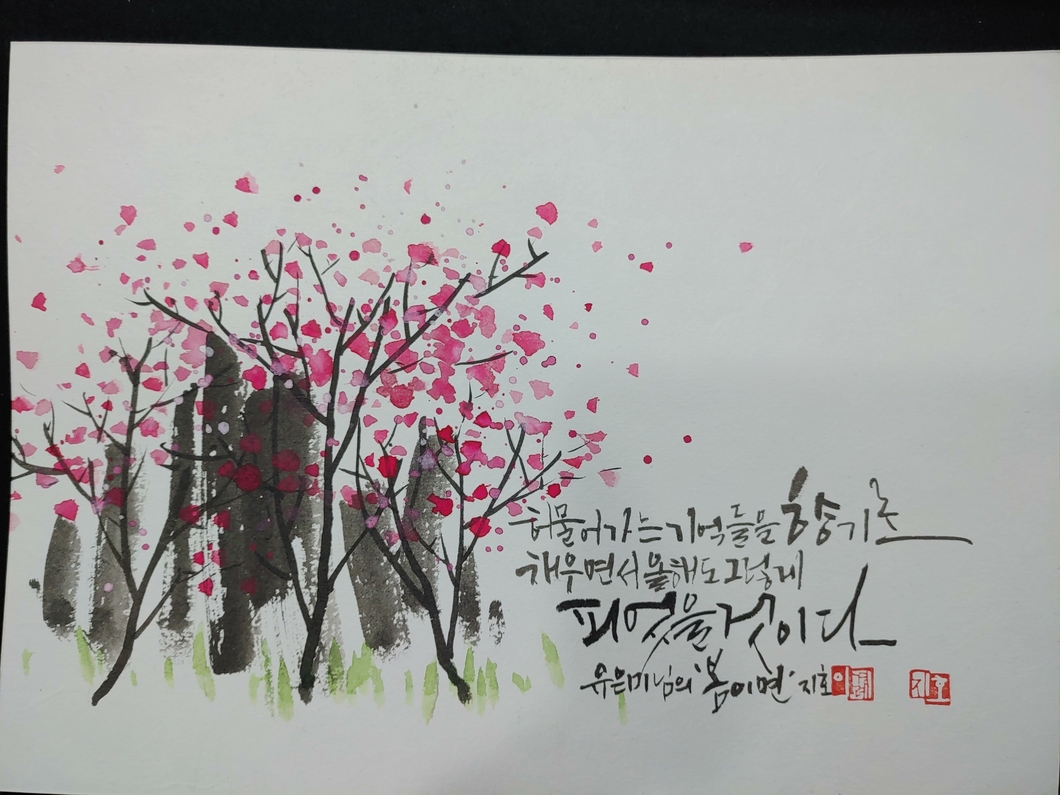 허물어가는 기억들을 향기로
채우면서 올해도 그렇게
피었을 것이다
유은미님의 '봄이면' 지호
지호